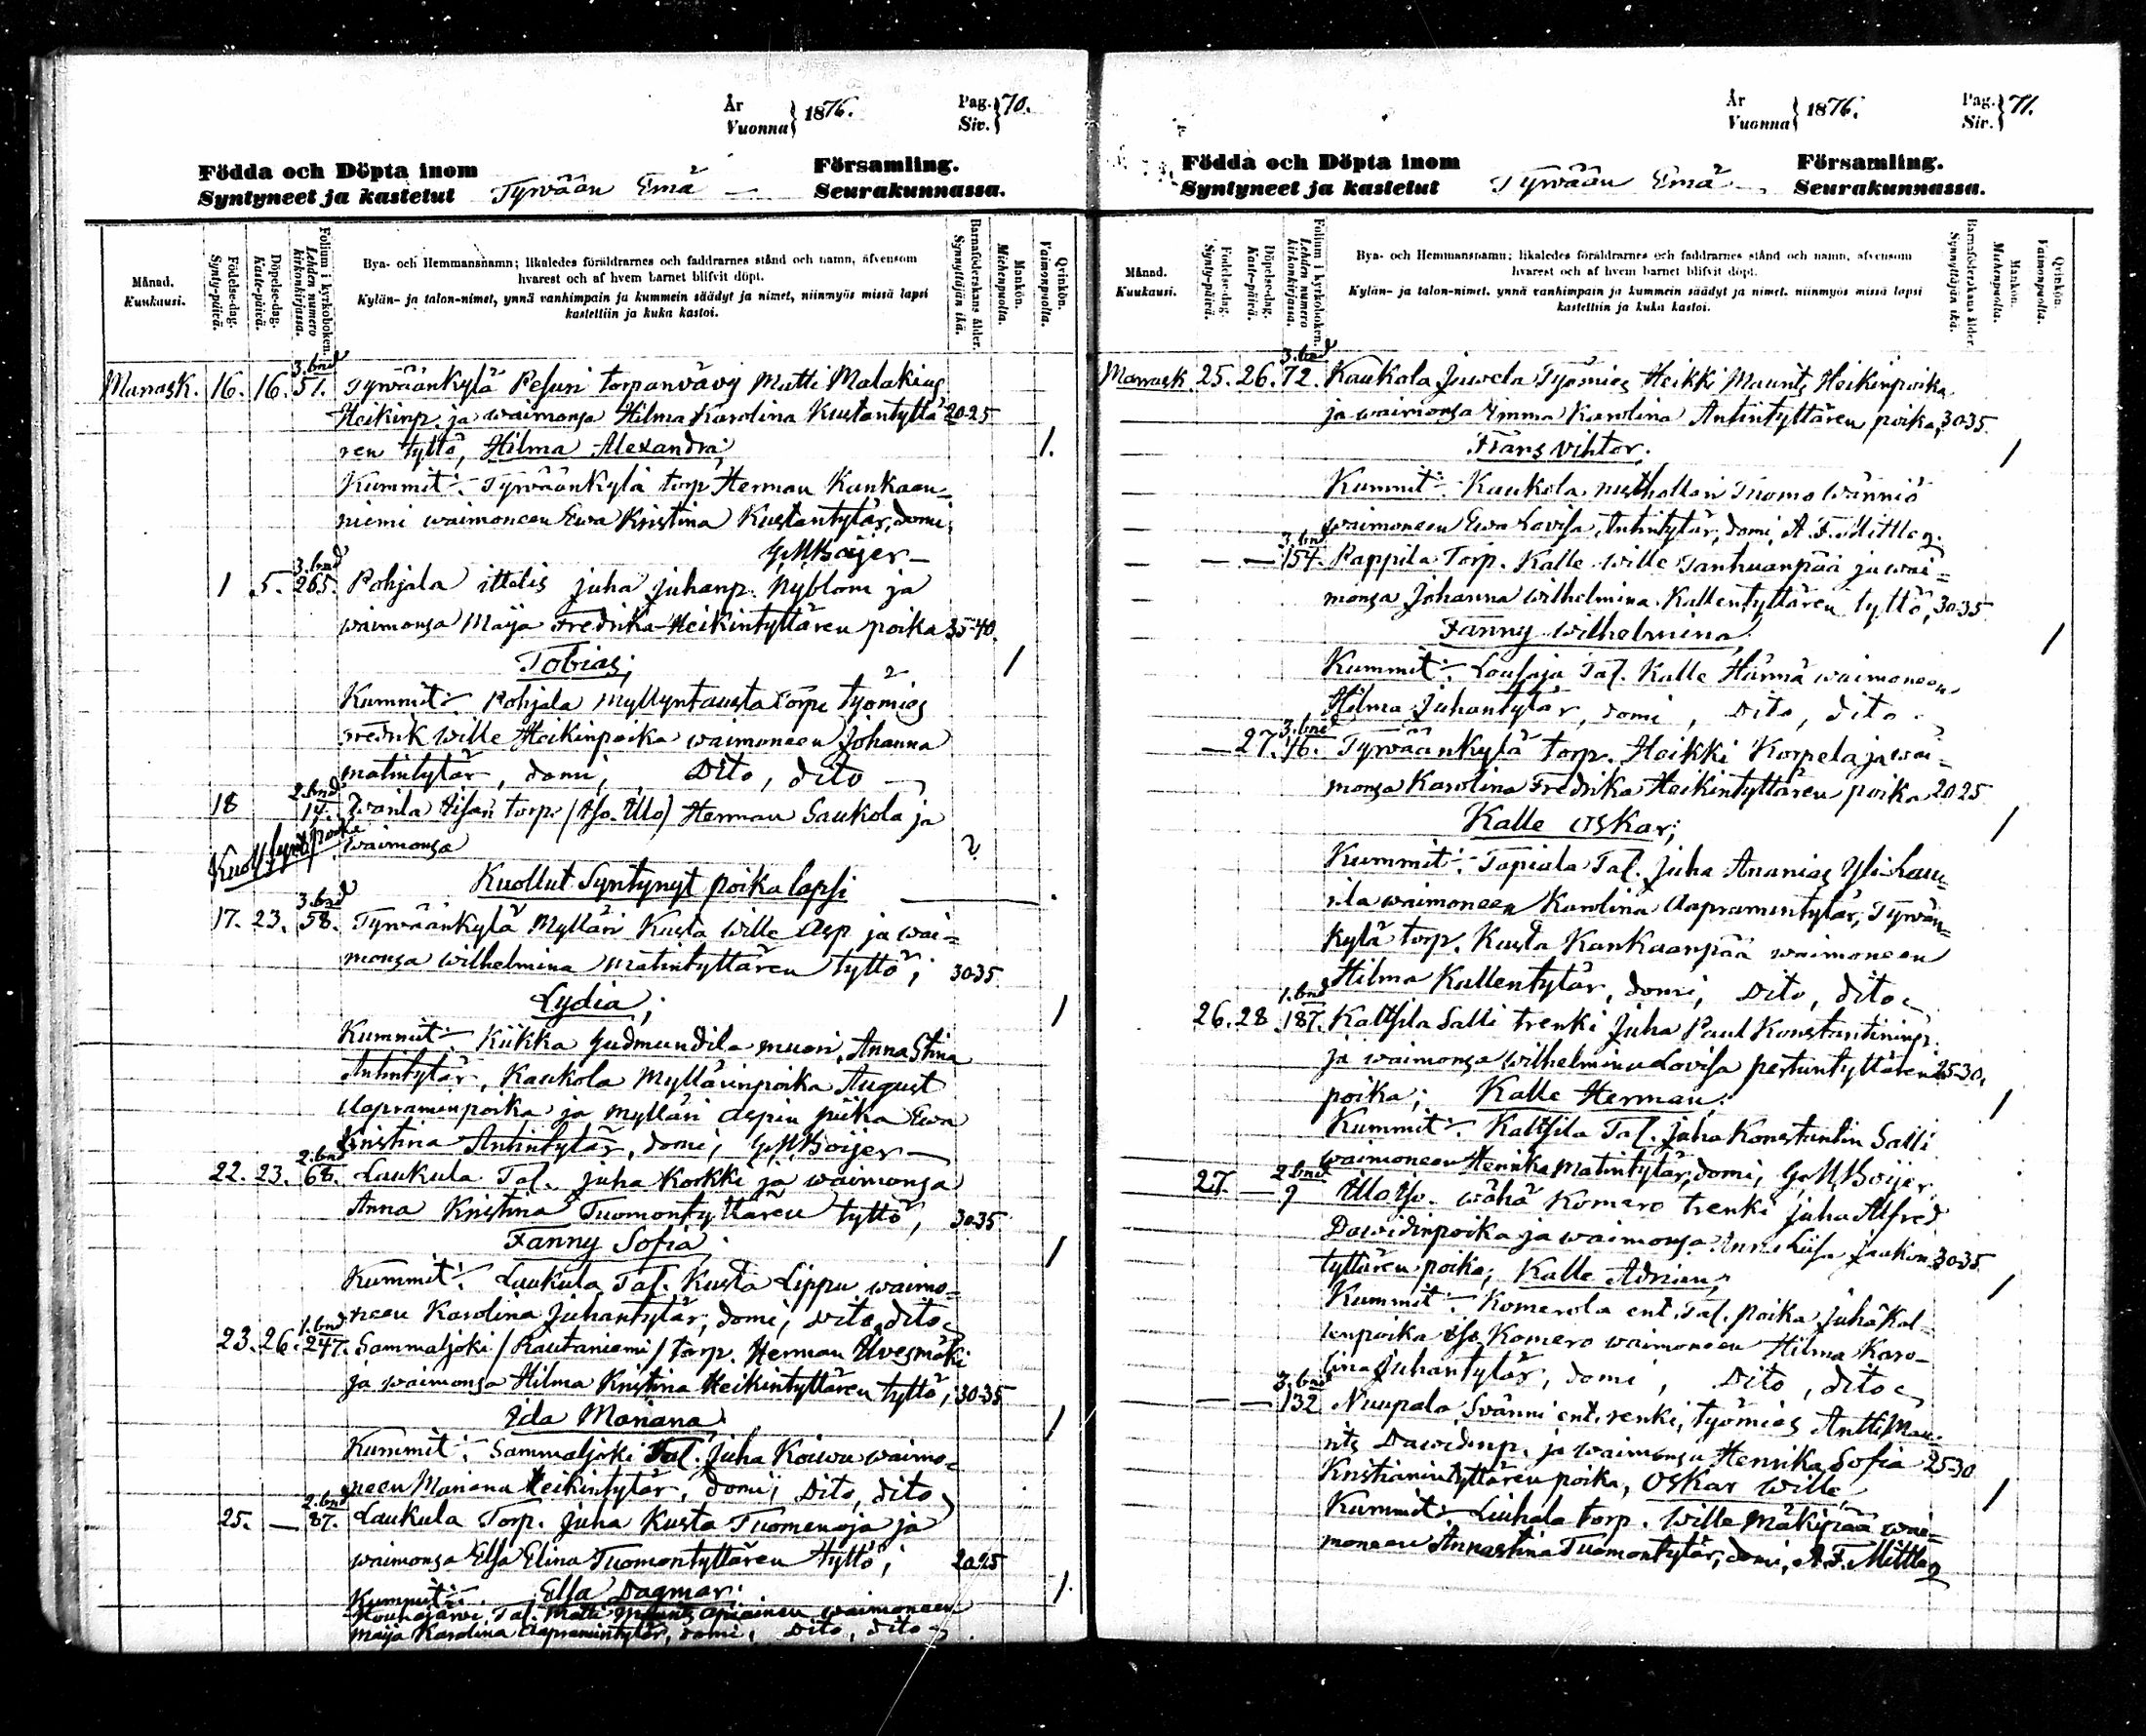 År
Vuonna } 1876.
Pag.
Siv. } 70.
Födda och Döpta inom
Syntyneet ja kastetut
Tyrvään Emä —
Församling.
Seurakunnassa.
Månad.
Kuukausi.
Födelse-dag.
Synty-päivä.
Döpelse-dag.
Kaste-päivä.
Folium i kyrkoboken.
Lehden numero
kirkonkirjassa.
Bya- och Hemmansnamn; likaledes föräldrarnes och faddrarnes stånd och namn, äfvensom
hvarest och af hvem barnet blifvit döpt.
Kylän- ja talon-nimet, ynnä vanhimpain ja kummein säädyt ja nimet, niinmyös missä lapsi
kastettiin ja kuka kastoi.
Barnaföderskans ålder.
Synnyttäjän ikä.
Mankön.
Miehenpuolta.
Qvinkön.
Vaimonpuolta.
3. bnd
Marrask. 16. 16. 51. Tyrväänkylä Pesuri torpanvävy Matti Malakias
Heikinp. ja waimonsa Hilma Karolina Kustantyttä 20-25
ren tyttö, Hilma Alexandra; 1.
Kummit: Tyrväänkylä torp Herman Kankaan-
niemi waimoneen Ewa Kristina Kustantytär, domi;
G.M.Boijer —
3. bnd
1 5. 265. Pohjala ittelis Juha Juhanp. Nyblom ja
waimonsa Maija Fredrika Heikintyttären poika 35-40.
Tobias; 1
Kummit: Pohjala Myllyntausta Torpp työmies
Fredrik Wille Heikinpoika waimoneen Johanna
Matintytär, domi, Dito, dito —
2. bnd
18 14. torp. Herman Saukola ja
Kuoll. synt. poika waimonsa ?
Kuollut Syntynyt poika lapsi
3. bnd
17. 23. 58. Tyrväänkylä Mylläri Kusta Wille Asp ja wai=
monsa Wilhelmina Matintyttären tyttö; 30-35
Lydia; 1
Kummit: Kiikka Gudmundila muori Anna Stina
Antintytär, Kaukola Myllärinpoika August
Aapramenpoika ja Mylläri Aspin piika Ewa
Kristina Antintytär, domi, G.M.Boijer —
2. bnd
22. 23. 68. Laukula Tal. Juha Korkki ja waimonsa
Anna Kristina Tuomontyttären tyttö, 30-35
Fanny Sofia. 1
Kummit: Laukula Tal. Kusta Lippu waimo=
neen Karolina Juhantytär, domi, Dito, dito
1. bnd
23. 26. 247. Sammaljoki /Rautaniemi/ torp. Herman Uvesmäki
ja waimonsa Hilma Kristina Heikintyttären tyttö, 30-35
Ida Mariana. 1
Kummit: Sammaljoki Tal. Juha Koiwu waimo=
neen Mariana Heikintytär, domi, Dito, dito
2. bnd
25. — 87. Laukula Torp. Juha Kusta Tuomenoja ja
waimonsa Elsa Elina Tuomontyttären tyttö; 20-25
Kummit: Ella Dagmar: 1.
Houhajärvi Tal. Matti waimoneen
Maija Karolina Aapramintytär, domi, Dito, dito
År
Vuonna } 1876.
Pag.
Siv. } 71.
Födda och Döpta inom
Syntyneet ja kastetut
Tyrvään Emä —
Församling.
Seurakunnassa.
Månad.
Kuukausi.
Födelse-dag.
Synty-päivä.
Döpelse-dag.
Kaste-päivä.
Folium i kyrkoboken.
Lehden numero
kirkonkirjassa.
Bya- och Hemmansnamn; likaledes föräldrarnes och faddrarnes stånd och namn, äfvensom
hvarest och af hvem barnet blifvit döpt.
Kylän- ja talon-nimet, ynnä vanhimpain ja kummein säädyt ja nimet, niinmyös missä lapsi
kastettiin ja kuka kastoi.
Barnaföderskans ålder.
Synnyttäjän ikä.
Mankön.
Miehenpuolta.
Qvinkön.
Vaimonpuolta.
3. bnd
Marrask. 25. 26. 72. Kaukola Juwela Työmies Heikki Maurits Heikinpoika
ja waimonsa Emma Karolina Antintyttären poika, 30-35.
Frans Vihtor; 1
Kummit: Kaukola rusthollari Tuomo Wänniö
waimoneen Ewa Lovisa Antintytär, domi, A.F.Mittler.
3. bnd
— — 154. Pappila Torp. Kalle Wille Tanhuanpää ja wai=
monsa Johanna Wilhelmina Kallentyttären tyttö, 30-35
Fanny Wilhelmina, 1
Kummit: Tal. Kalle waimoneen
Hilma Juhantytär, domi, Dito, dito
3. bnd
— 27. 46. Tyrväänkylä torp. Heikki Korpela ja wai=
monsa Karolina Fredrika Heikintyttären poika 20-25
Kalle Oskar; 1
Kummit: Tapiola Tal. Juha Ananias Yli-Lau=
rila waimoneen Karolina Aapramintytär, Tyrvään=
kylä torp. Kusta Kankaanpää waimoneen
Hilma Kallentytär, domi, Dito, dito
1. bnd
26. 28. 187. Kaltsila Salli trenki Juha Paul Konstantininp.
ja waimonsa Wilhelmina Lovisa Pertuntyttären 25-30.
poika; Kalle Herman; 1
Kummit: Kaltsila Tal. Juha Konstantin Salli
waimoneen Henrika Matintytär, domi, G.M.Boijer.
2 bnd
27. — 9 Wähä Komero trenki Juha Alfred
Dawidinpoika ja waimonsa Anna Liisa Jaakon 30-35.
tyttären poika, Kalle Adrian; 1
Kummit: Komerola ent. Tal. poika Juha Kal=
lenpoika iso Komero waimoneen Hilma Karo-
lina Juhantytär, domi, Dito, dito
3. bnd
— — 132 Nuupala Svänni ent. renki, työmies Antti Mau=
rits Dawidinp. ja waimonsa Henrika Sofia 25-30
Kristianintyttären poika, Oskar Wille, 1
Kummit: Liuhala torp. Wille Mäkipää wai=
moneen Annastina Tuomontytär, domi, A.F. Mittler